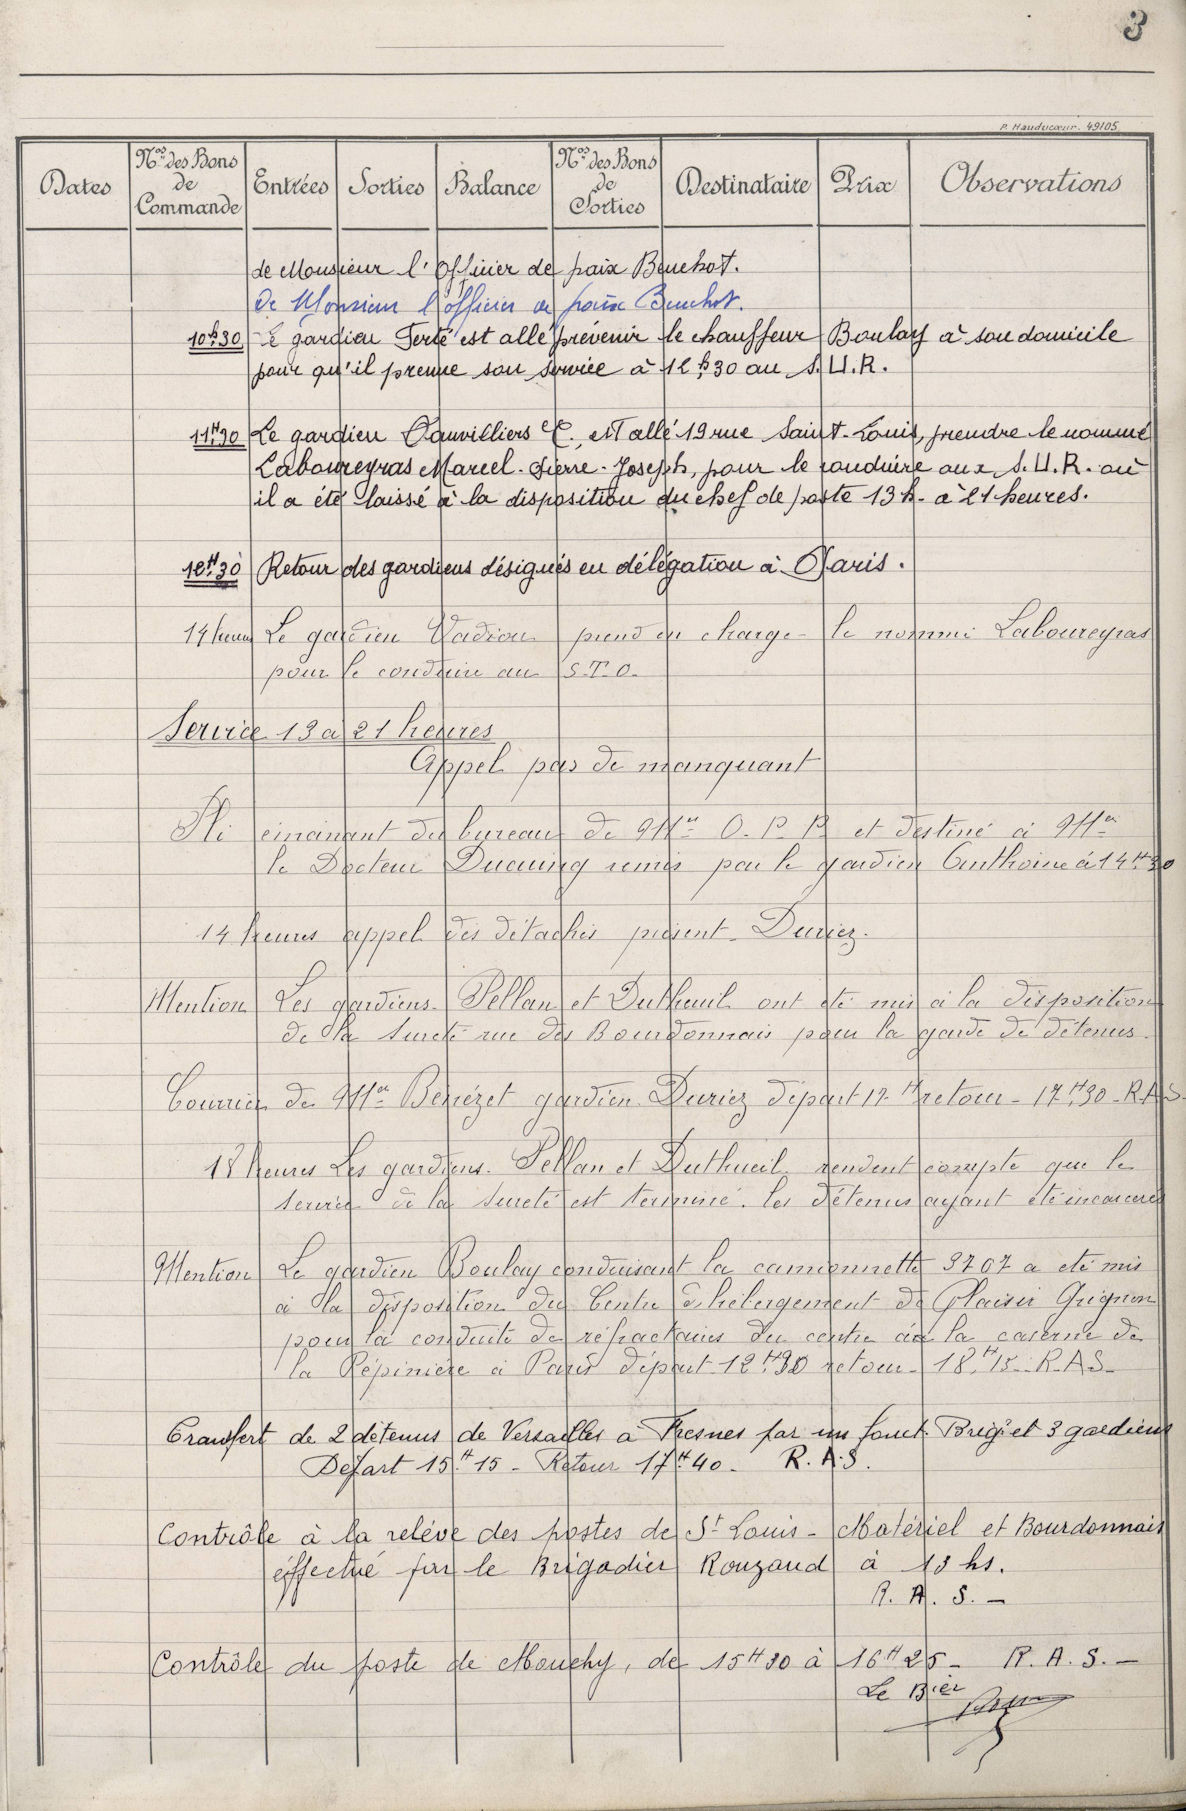 3
P. Hauducœur. 49105
Dates
Nos des Bons de Commande
Entrées
Sorties
Balance
Nos des Bons de Sorties
Destinataire
Prix
Observations
de Monsieur l'Officier de paix Beuchot.
de Monsieur l'officier de paix Beuchot.
10h30 Le gardien Ferté est allé prévenir le chauffeur Boulay à son domicile
pour qu'il prenne son service à 12h30 au S.U.R.
11H30 Le gardien Dauvilliers C. est allé 19 rue Saint-Louis, prendre le nommé
Laboureyras Marcel-Pierre-Joseph, pour le conduire aux S.U.R. où
il a été laissé à la disposition du chef de poste 13h. à 21 heures.
12H30 Retour des gardiens désignés en délégation à Paris.
14 heures Le gardien Vadiou prend en charge le nommé Laboureyras
pour le conduire au S.T.O.
Service 13 à 21 heures
Appel pas de manquant
Pli émanant du bureau de Mr O.P.P. et destiné à Mr
le Docteur Ducuing remis par le gardien Anthoine à 14H30
14 heures appel des détachés présent Duriez.
Mention Les gardiens Pellan et Dutheuil ont été mis à la disposition
de la Sureté rue des Bourdonnais pour la garde de détenus.
Courrier de Mr Bénézet gardien Duriez départ 17H retour 17H30 R.A.S.
18 heures Les gardiens Pellan et Dutheuil rendent compte que le
service à la Sureté est terminé. les détenus ayant été incarcerés
Mention Le gardien Boulay conduisant la camionnette 3707 a été mis
à la disposition du Centre d'hébergement de Plaisir Grignon
pour la conduite de réfractaires du centre à la caserne de
la Pépinière à Paris départ 12H30 retour 18H15 R.A.S.
Transfert de 2 détenus de Versailles à Fresnes par un fonct. Brigr et 3 gardiens
Départ 15H15 - Retour 17H40 - R.A.S.
Contrôle à la relève des postes de St Louis - Matériel et Bourdonnais
éffectué par le Brigadier Rouzaud à 13 hs.
R.A.S. -
Contrôle du poste de Mouchy, de 15H30 à 16H25 - R.A.S. -
Le Bier